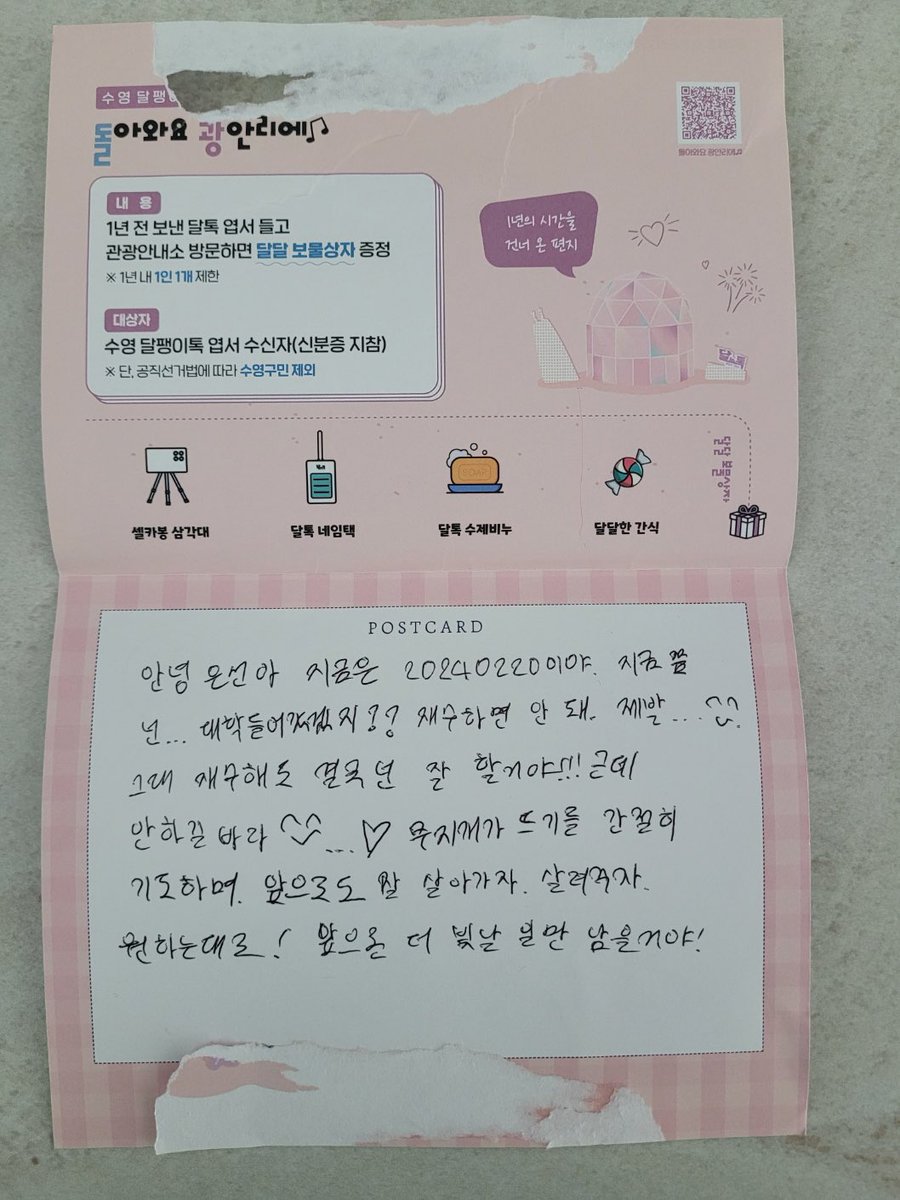 수영 달팽이
돌아와요 광안리에♪
돌아와요 광안리에♪
내 용
1년 전 보낸 달톡 엽서 들고
관광안내소 방문하면 달달 보물상자 증정
※ 1년 내 1인 1개 제한
대상자
수영 달팽이톡 엽서 수신자(신분증 지참)
※ 단, 공직선거법에 따라 수영구민 제외
1년의 시간을
건너 온 편지
달달 보물상자
SOAP
셀카봉 삼각대
달톡 네임택
달톡 수제비누
달달한 간식
POSTCARD
안녕 온선아 지금은 20240220이야. 지금쯤
넌... 대학들어갔겠지?? 재수하면 안 돼. 제발...
그래 재수해도 결국 넌 잘 할거야!!! 근데
안하길 바라 ... ♡ 무지개가 뜨기를 간절히
기도하며. 앞으로도 잘 살아가자. 살려주자.
원하는대로! 앞으론 더 빛날 일만 남을거야!